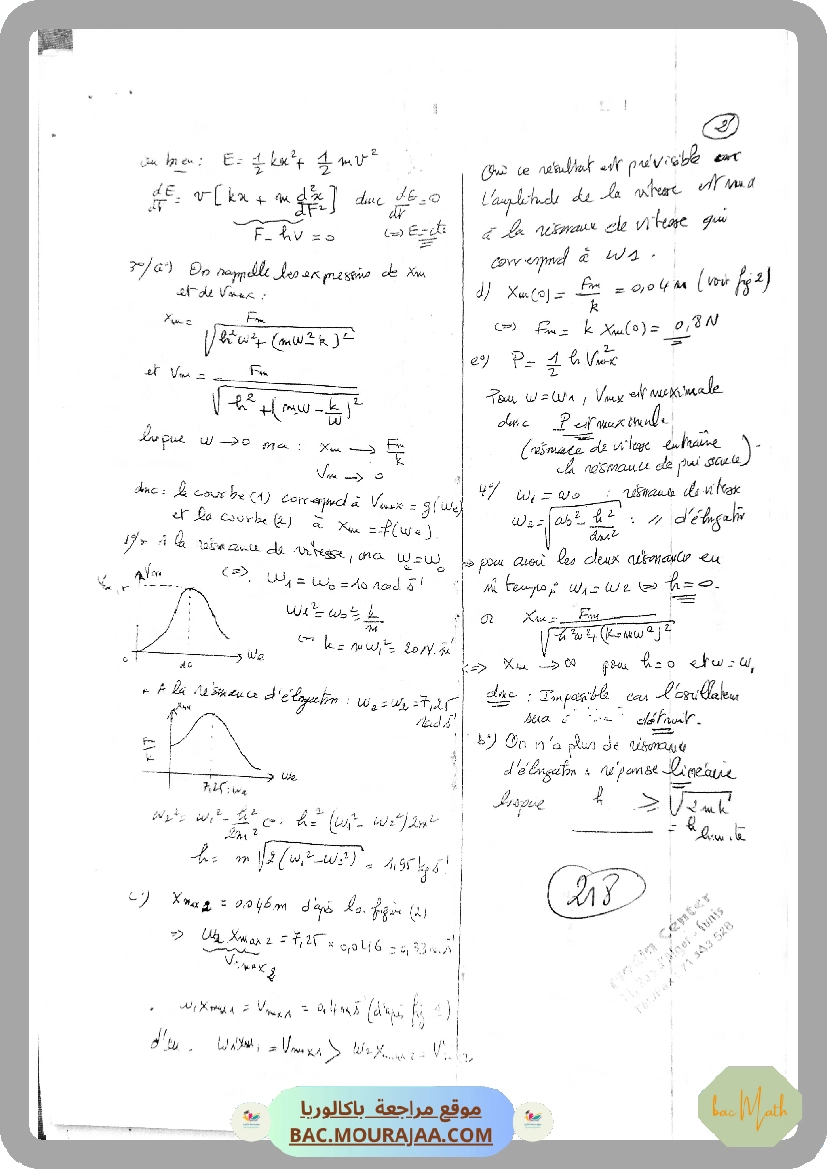 2)
ou bien : E = 1/2 kx² + 1/2 mv²
dE/dt = v [kx + m d²x/dt²] donc dE/dt = 0
F - hv = 0 (=> E = cte
3°/a°) On rappelle les expressions de Xm
et de Vmax :
Xm = Fm / √(h²w² + (mw² - k)²)
et Vm = Fm / √(h² + (mw - k/w)²)
lorsque w → 0 on a : Xm → Fm/k
Vm → 0
donc : la courbe (1) correspond à Vmax = g(we)
et la courbe (2) à Xm = f(we).
à la résonance de vitesse, on a we = wo
(=>. w1 = wo = 10 rad s⁻¹
w1² = wo² = k/m
k = m w1² = 20 N.m⁻¹
Vm
0 10 we
A la résonance d'élongation : we = w2 = 7,25
rad s⁻¹
Xmax
Fm/k
7,25 = w2 we
w2² = w1² - h²/2m² (=> h² = (w1² - w2²) 2m²
h = m √(2(w1² - w2²)) = 1,95 kg s⁻¹
c°) Xmax2 = 0,046 m d'après la figure (2)
=> w2 Xmax2 = 7,25 × 0,046 = 0,33 m s⁻¹
Vmax2
. w1 Xmax1 = Vmax1 = 0,4 m s⁻¹ (d'après fig 1)
d'où . w1 Xm1 = Vmax1 > w2 Xmax2 = V
Oui ce résultat est prévisible car
L'amplitude de la vitesse est max
à la résonance de vitesse qui
correspond à w1.
d) Xm(0) = Fm/k = 0,04 m (voir fig 2)
(=> Fm = k Xm(0) = 0,8 N
e°) P = 1/2 h Vmax²
Pour w = w1, Vmax est maximale
donc P est maximale
(résonance de vitesse entraîne
la résonance de puissance).
4°/ w1 = wo : résonance de vitesse
w2 = √(wo² - h²/2m²) : // d'élongation
=> pour avoir les deux résonance en
m̂ temps ; w1 = w2 (=> h = 0.
or Xm = Fm / √(h²w² + (k - mw²)²)
(=> Xm → ∞ pour h = 0 et w = w1
donc : Impossible car l'oscillateur
sera détruit.
b°) On n'a plus de résonance
d'élongation : réponse linéaire
lorsque h ≥ √(2mk)
= h limite
213
Center
موقع مراجعة باكالوريا
BAC.MOURAJAA.COM
bac Math